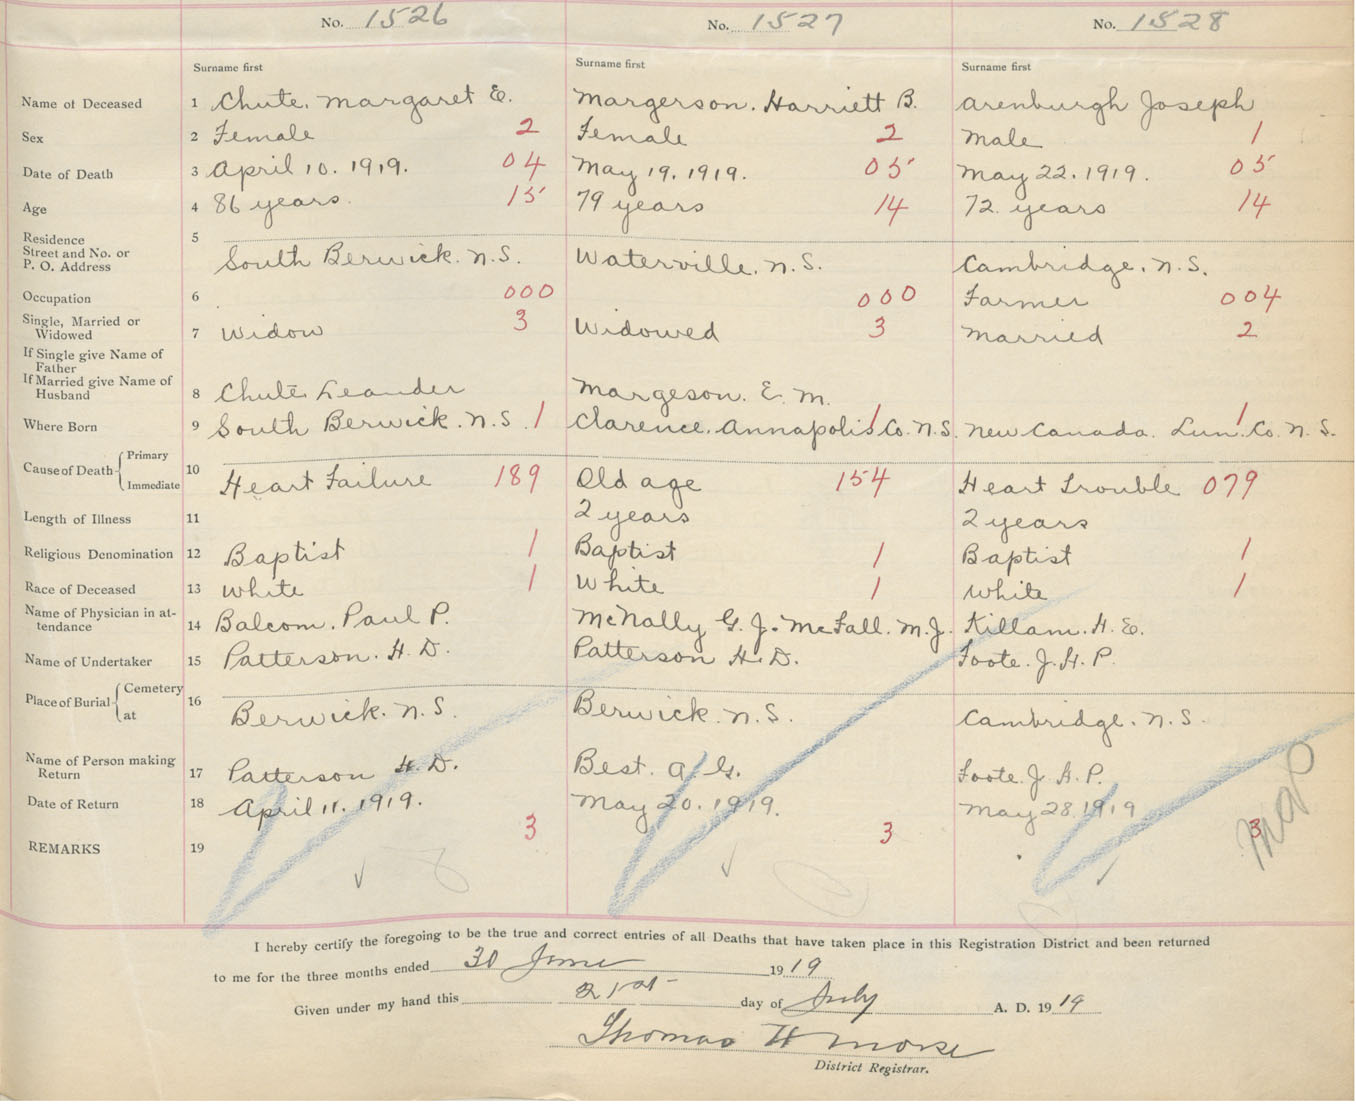 No. 1526 No. 1527 No. 1528
Surname first Surname first Surname first
Name of Deceased 1 Chute, Margaret E. Margerson. Harriett B. Arenburgh Joseph
Sex 2 Female 2 Female 2 Male 1
Date of Death 3 April 10. 1919. 04 May 19. 1919. 05 May 22. 1919. 05
Age 4 86 years. 15 79 years 14 72 years 14
Residence 5
Street and No. or
P. O. Address South Berwick. N.S. Waterville. N.S. Cambridge. N.S.
Occupation 6 000 000 Farmer 004
Single, Married or
Widowed 7 Widow 3 Widowed 3 Married 2
If Single give Name of
Father
If Married give Name of
Husband 8 Chute Leander Margeson. E. M.
Where Born 9 South Berwick. N.S. 1 Clarence. Annapolis Co. N.S. 1 New Canada. Lun. Co. N.S. 1
Cause of Death Primary
Immediate 10 Heart Failure 189 Old age 154 Heart Trouble 079
Length of Illness 11 2 years 2 years
Religious Denomination 12 Baptist 1 Baptist 1 Baptist 1
Race of Deceased 13 White 1 White 1 White 1
Name of Physician in at-
tendance 14 Balcom. Paul P. McNally G. J. McFall. M.J. Killam. H. E.
Name of Undertaker 15 Patterson. H. D. Patterson H. D. Foote. J. H. P.
Place of Burial Cemetery
at 16 Berwick. N.S. Berwick. N.S. Cambridge. N.S.
Name of Person making
Return 17 Patterson H. D. Best. A. G. Foote. J. H. P.
Date of Return 18 April 11. 1919. May 20. 1919. May 28 1919
3 3 3
REMARKS 19
I hereby certify the foregoing to be the true and correct entries of all Deaths that have taken place in this Registration District and been returned
to me for the three months ended 30 June 1919
Given under my hand this 21st day of July A. D. 1919
Thomas H Morse
District Registrar.